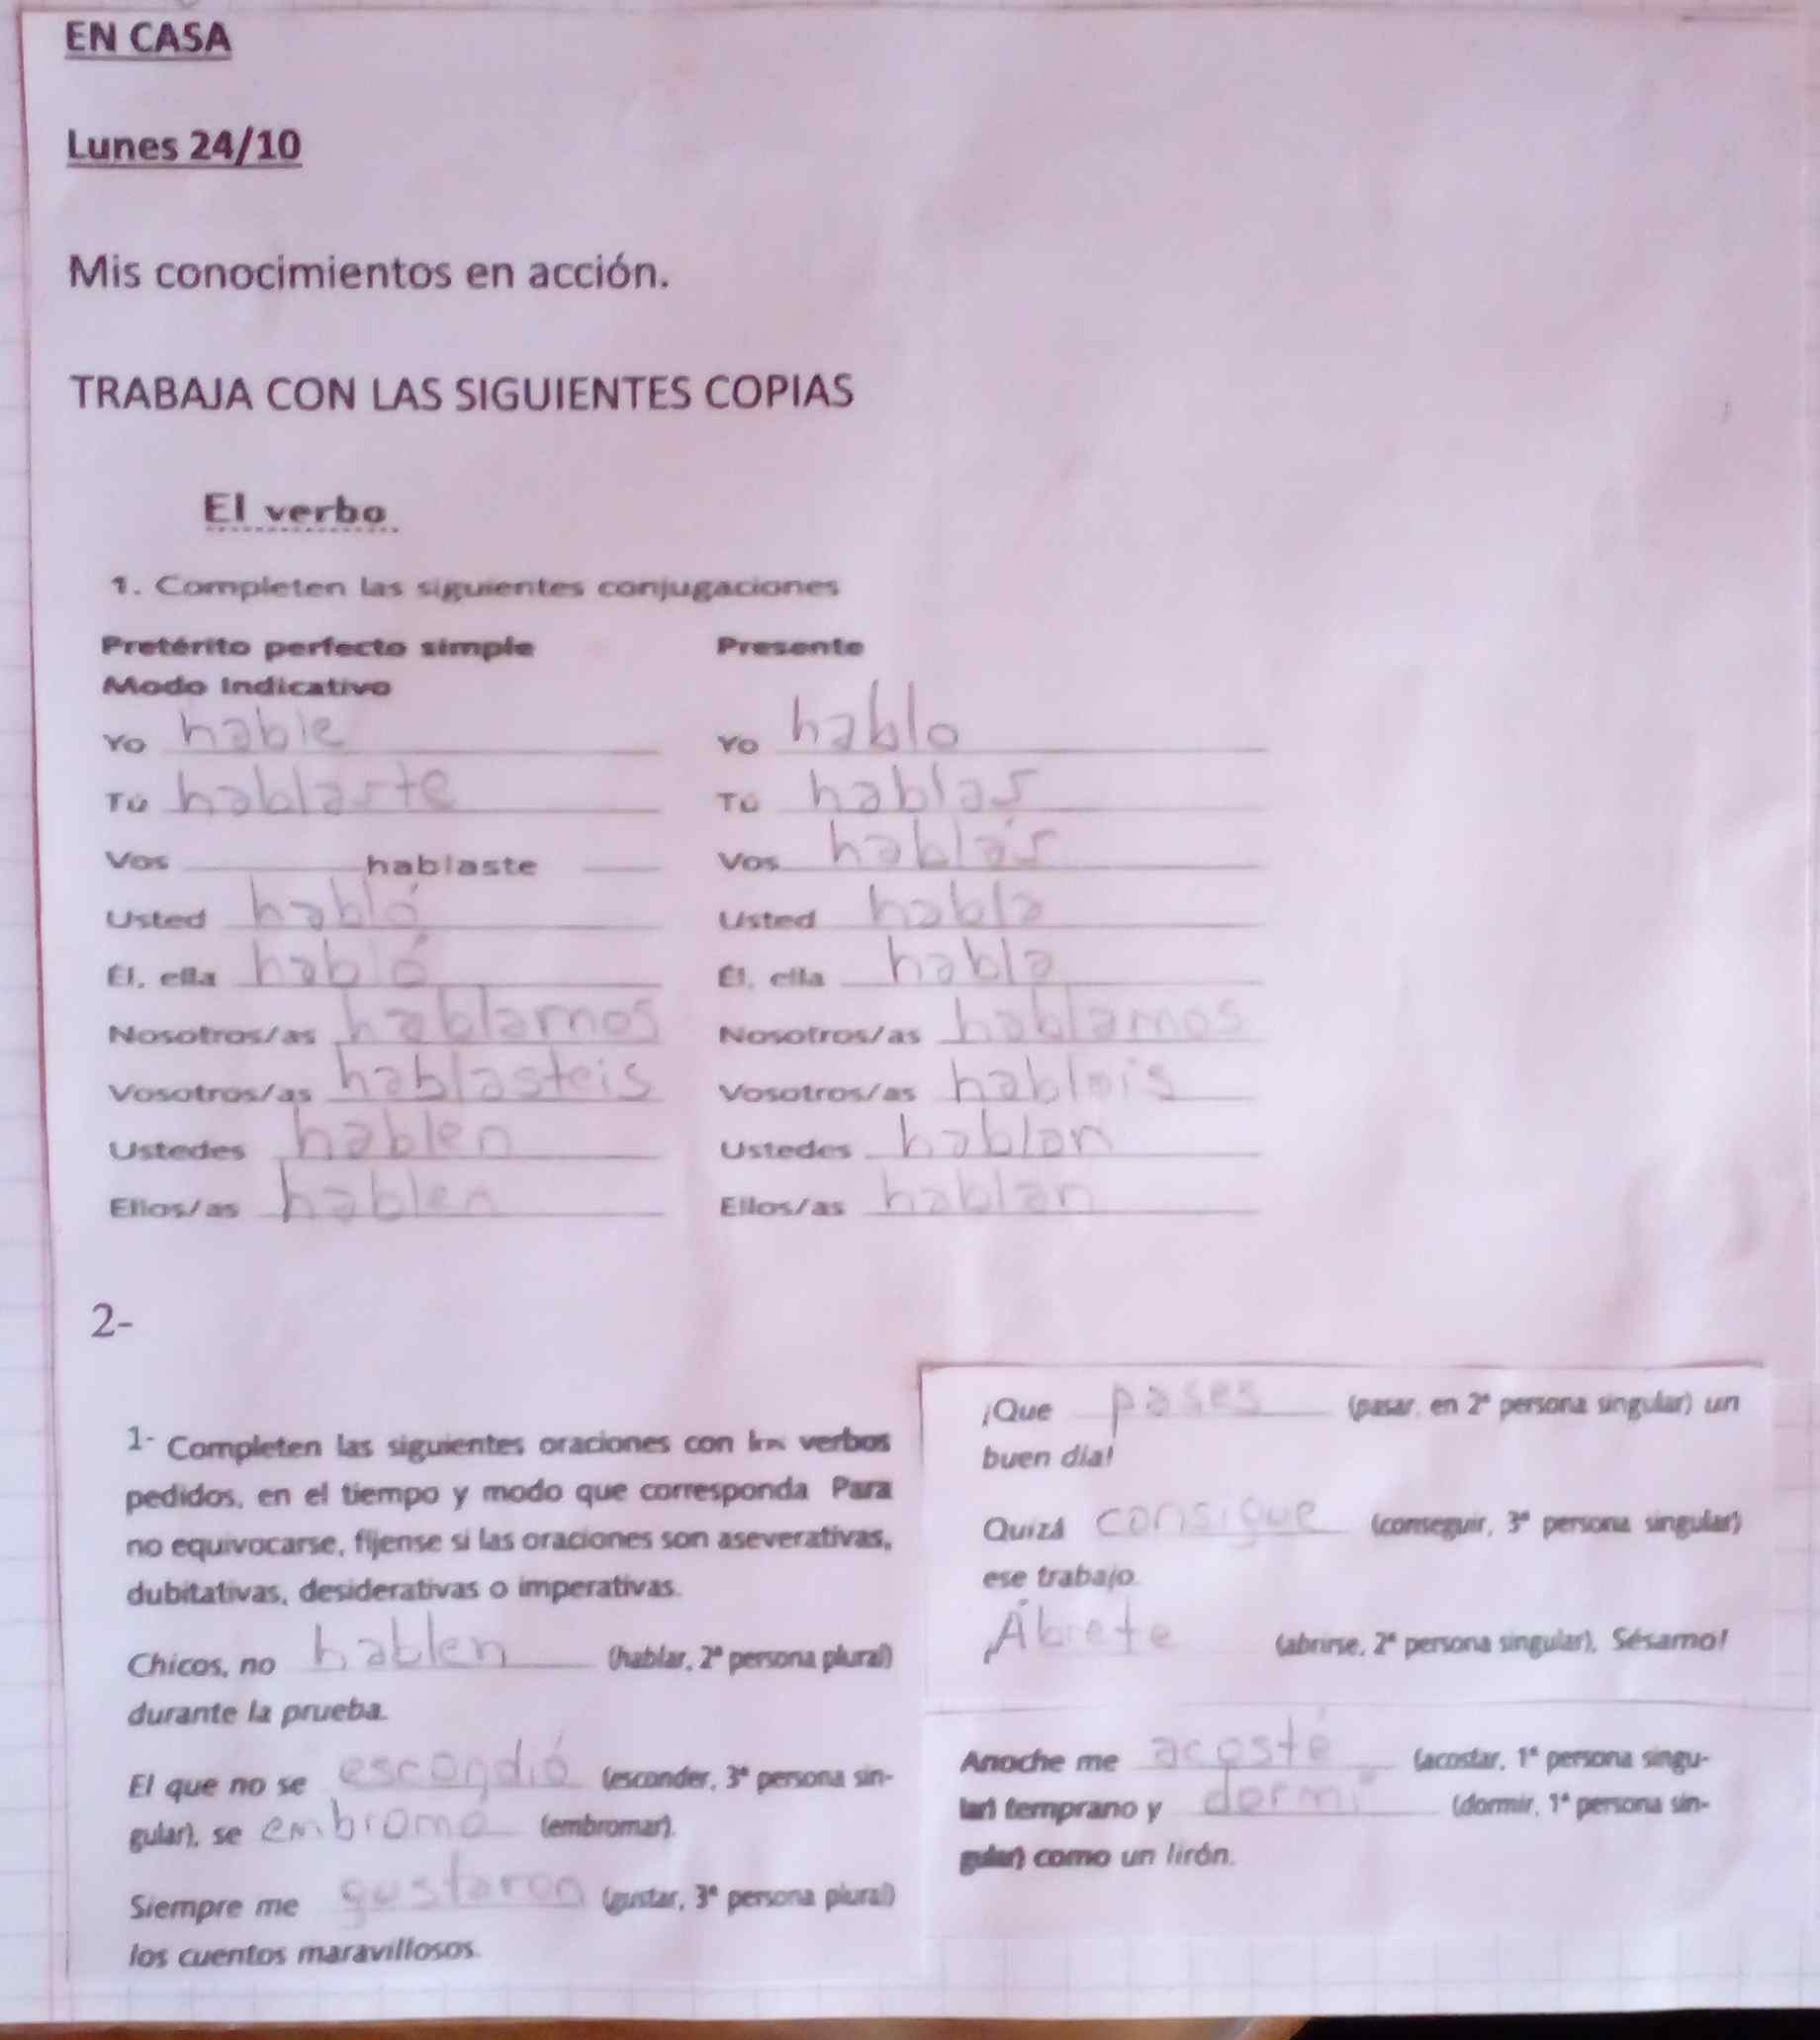 EN CASA
Lunes 24/10
Mis conocimientos en acción.
TRABAJA CON LAS SIGUIENTES COPIAS
El verbo
1. Completen las siguientes conjugaciones
Pretérito perfecto simple
Modo Indicativo
Yo hable
Tú hablaste
Vos hablaste
Usted habló
Él, ella habló
Nosotros/as hablamos
Vosotros/as hablasteis
Ustedes hablen
Ellos/as hablen
Presente
Yo hablo
Tú hablas
Vos hablás
Usted habla
Él, ella habla
Nosotros/as hablamos
Vosotros/as hablais
Ustedes hablan
Ellos/as hablan
2-
1- Completen las siguientes oraciones con los verbos
pedidos, en el tiempo y modo que corresponda Para
no equivocarse, fíjense si las oraciones son aseverativas,
dubitativas, desiderativas o imperativas.
Chicos, no hablen (hablar, 2ª persona plural)
durante la prueba.
El que no se escondió (esconder, 3ª persona sin-
gular), se embroma (embromar).
Siempre me gustaron (gustar, 3ª persona plural)
los cuentos maravillosos.
¡Que pases (pasar, en 2ª persona singular) un
buen día!
Quizá consigue (conseguir, 3ª persona singular)
ese trabajo.
¡Ábrete (abrirse, 2ª persona singular), Sésamo!
Anoche me acosté (acostar, 1ª persona singu-
lar) temprano y dormí (dormir, 1ª persona sin-
gular) como un lirón.